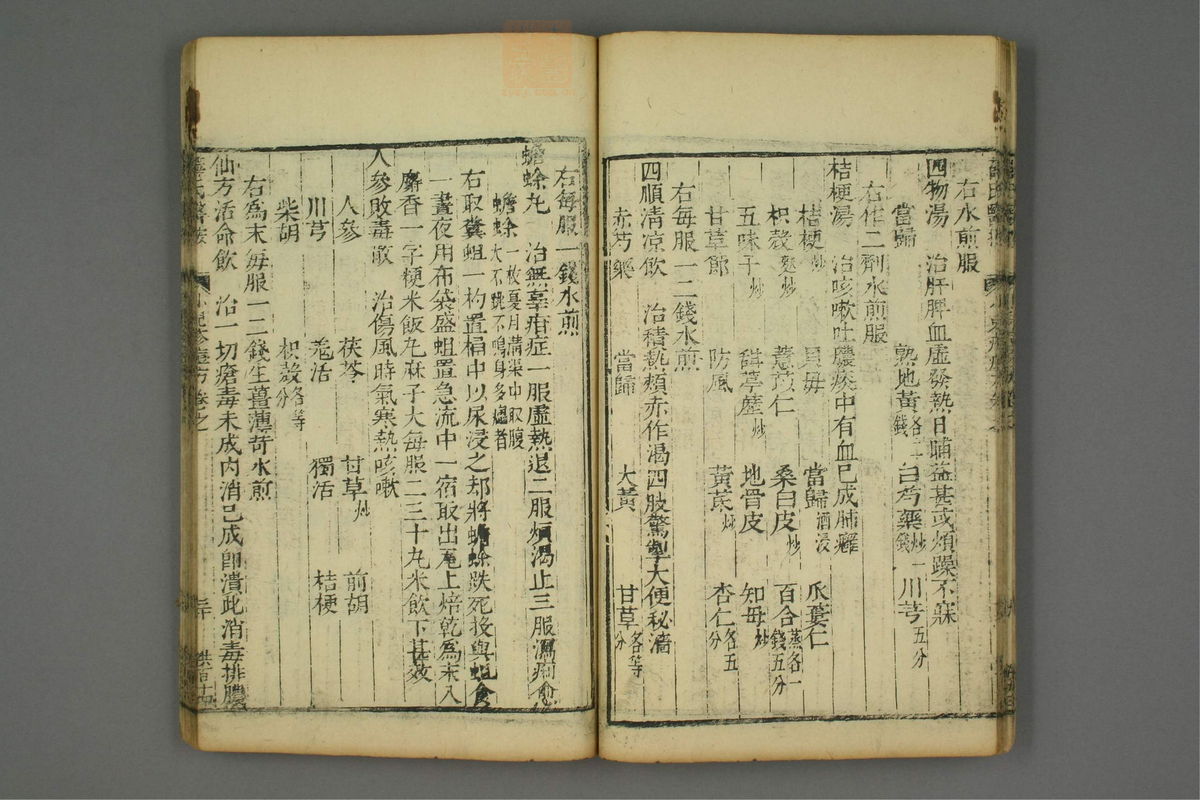 右水煎服
四物湯　治肝脾血虛發熱日晡益甚或煩躁不寐
當歸　熟地黃各二錢　白芍藥炒一錢　川芎五分
右作二劑水煎服
桔梗湯　治咳嗽吐膿痰中有血已成肺癰
桔梗炒　貝母　當歸酒浸　瓜蔞仁
枳殼麩炒　薏苡仁　桑白皮炒　百合蒸各一錢五分
五味子炒　葶藶炒　地骨皮　知母炒
甘草節　防風　黃芪炒　杏仁各五分
右每服一二錢水煎
四順清涼飲　治積熱頰赤作渴四肢驚掣大便秘濇
赤芍藥　當歸　大黃　甘草各等分
右每服一錢水煎
蟾蜍丸　治無辜疳症一服虛熱退二服煩渴止三服瀉痢愈
蟾蜍一枚夏月溝渠中取腹大不跳不鳴身多癩者
右取糞蛆一杓置桶中以尿浸之却將蟾蜍跌死投與蛆食
一晝夜用布袋盛蛆置急流中一宿取出瓦上焙乾爲末入
麝香一字粳米飯丸麻子大每服二三十丸米飲下甚效
人參敗毒散　治傷風時氣寒熱咳嗽
人參　茯苓　甘草炒　前胡
川芎　羗活　獨活　桔梗
柴胡　枳殼各等分
右爲末每服一二錢生薑薄荷水煎
仙方活命飲　治一切瘡毒未成內消已成卽潰此消毒排膿
薛氏醫按